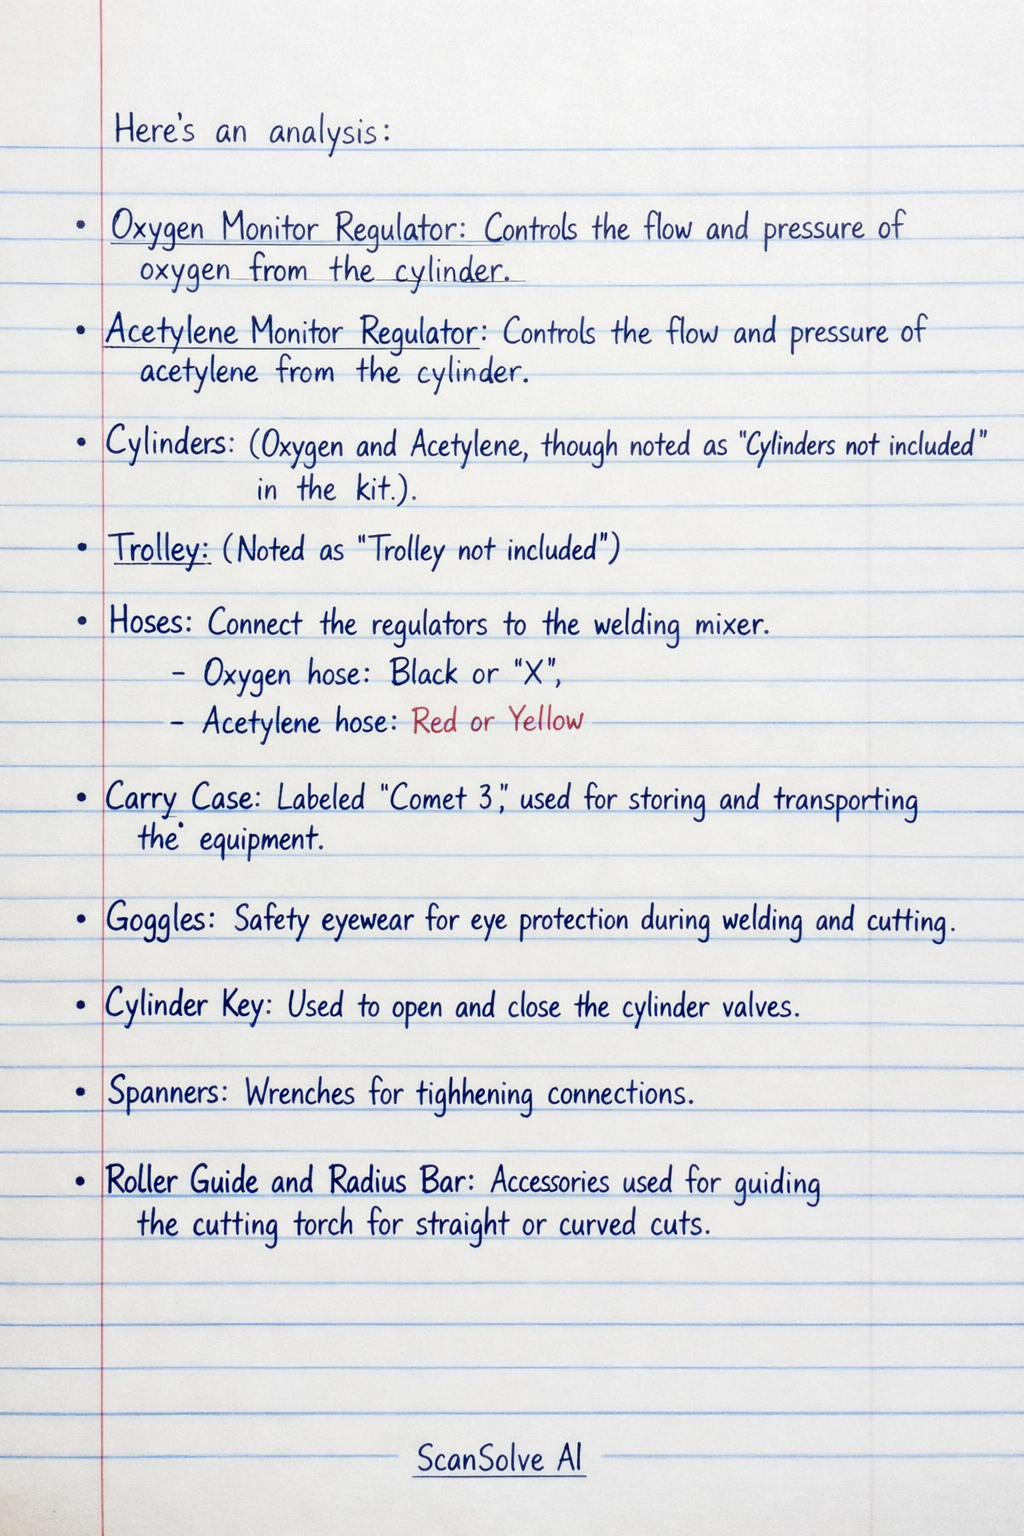 Here's an analysis:
• Oxygen Monitor Regulator: Controls the flow and pressure of
oxygen from the cylinder.
• Acetylene Monitor Regulator: Controls the flow and pressure of
acetylene from the cylinder.
• Cylinders: (Oxygen and Acetylene, though noted as "Cylinders not included"
in the kit.).
• Trolley: (Noted as "Trolley not included")
• Hoses: Connect the regulators to the welding mixer.
- Oxygen hose: Black or "X",
- Acetylene hose: Red or Yellow
• Carry Case: Labeled "Comet 3," used for storing and transporting
the equipment.
• Goggles: Safety eyewear for eye protection during welding and cutting.
• Cylinder Key: Used to open and close the cylinder valves.
• Spanners: Wrenches for tighhening connections.
• Roller Guide and Radius Bar: Accessories used for guiding
the cutting torch for straight or curved cuts.
ScanSolve AI